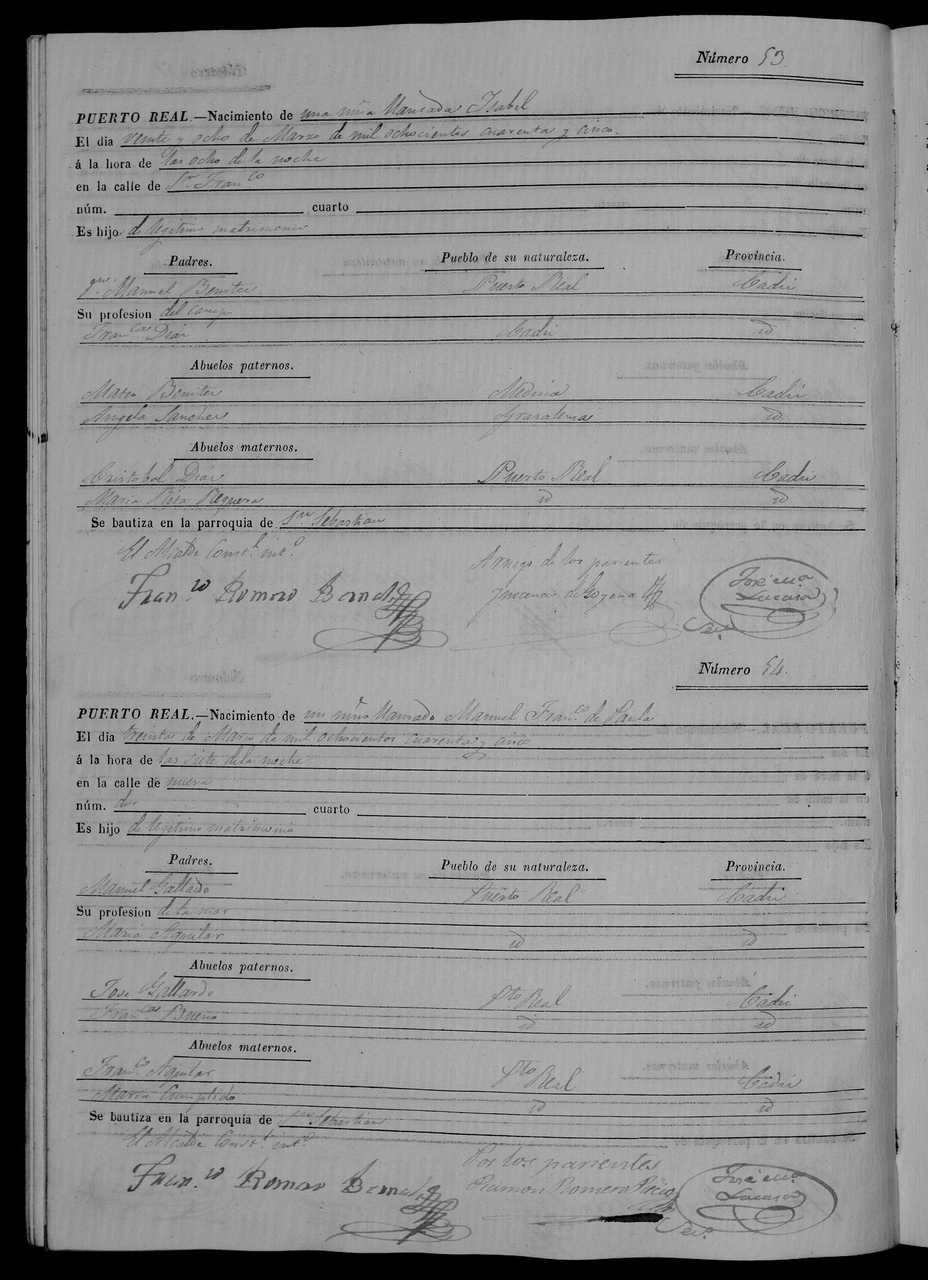 Número 53.
PUERTO REAL.—Nacimiento de una niña llamada Isabel
El dia veinte y ocho de Marzo de mil ochocientos cuarenta y cinco.
á la hora de las ocho de la noche
en la calle de Sn Franco
núm. cuarto
Es hijo de legitimo matrimonio
Padres. Pueblo de su naturaleza. Provincia.
Manuel Benitez Puerto Real Cadiz
Su profesion del campo
Franca Diaz Cadiz id
Abuelos paternos.
Benitez Medina Cadiz
Angela Sanchez Grazalema id
Abuelos maternos.
Cristobal Diaz Puerto Real Cadiz
Maria Reguera id id
Se bautiza en la parroquia de Sn Sebastian
El Alcalde Constl. into Amigo de los parientes
Franco Romero Bernal José Ma Lucaza
Srio
Número 54.
PUERTO REAL.—Nacimiento de un niño llamado Manuel Franco de Paula
El dia treinta de Marzo de mil ochocientos cuarenta y cinco
á la hora de las siete de la noche
en la calle de nueva
núm. dos cuarto
Es hijo de legitimo matrimonio
Padres. Pueblo de su naturaleza. Provincia.
Manuel Gallardo Puerto Real Cadiz
Su profesion de la mar
Maria Aguilar id id
Abuelos paternos.
Jose Gallardo Pto Real Cadiz
Franca Bueno id id
Abuelos maternos.
Franco Aguilar Pto Real Cadiz
Maria Cumplido id id
Se bautiza en la parroquia de Sn Sebastian
El Alcalde Constl. into Por los parientes
Franco Romero Bernal Ramon Romero José Ma Lucaza
Srio